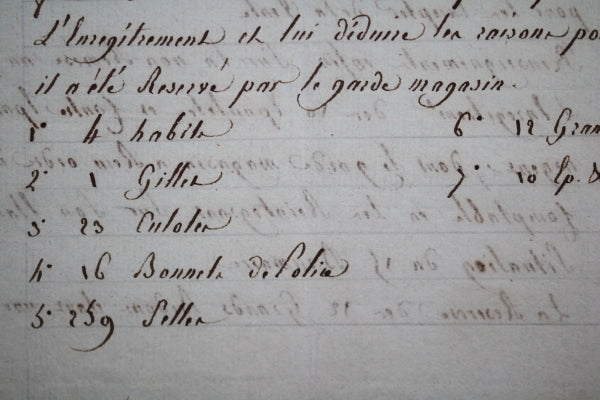 L'Enregitrement et lui déduire les raisons po
il a été Reservé par le garde magasin.
1° 4 habits 6° 12 Gran
2° 1 Gillet 7° 10 Ep. &
3° 23 Culotes
4° 16 Bonnets de Police
5° 259 Selles